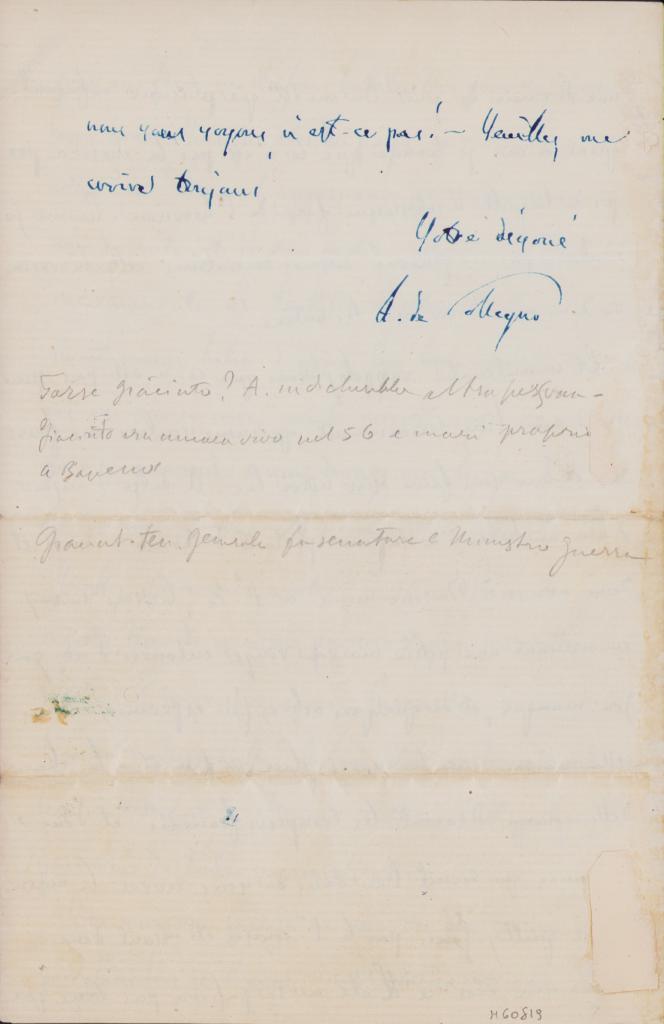 nous nous voyons n'est-ce pas! – Veuillez me
toujours
Votre dévoué
A. de Collegno
Forse Giacinto? A. indicherebbe altra persona –
Giacinto era ancora vivo nel 56 e morì proprio
a Baveno
Giacinto ten. generale fu senatore e Ministro guerra
M60819